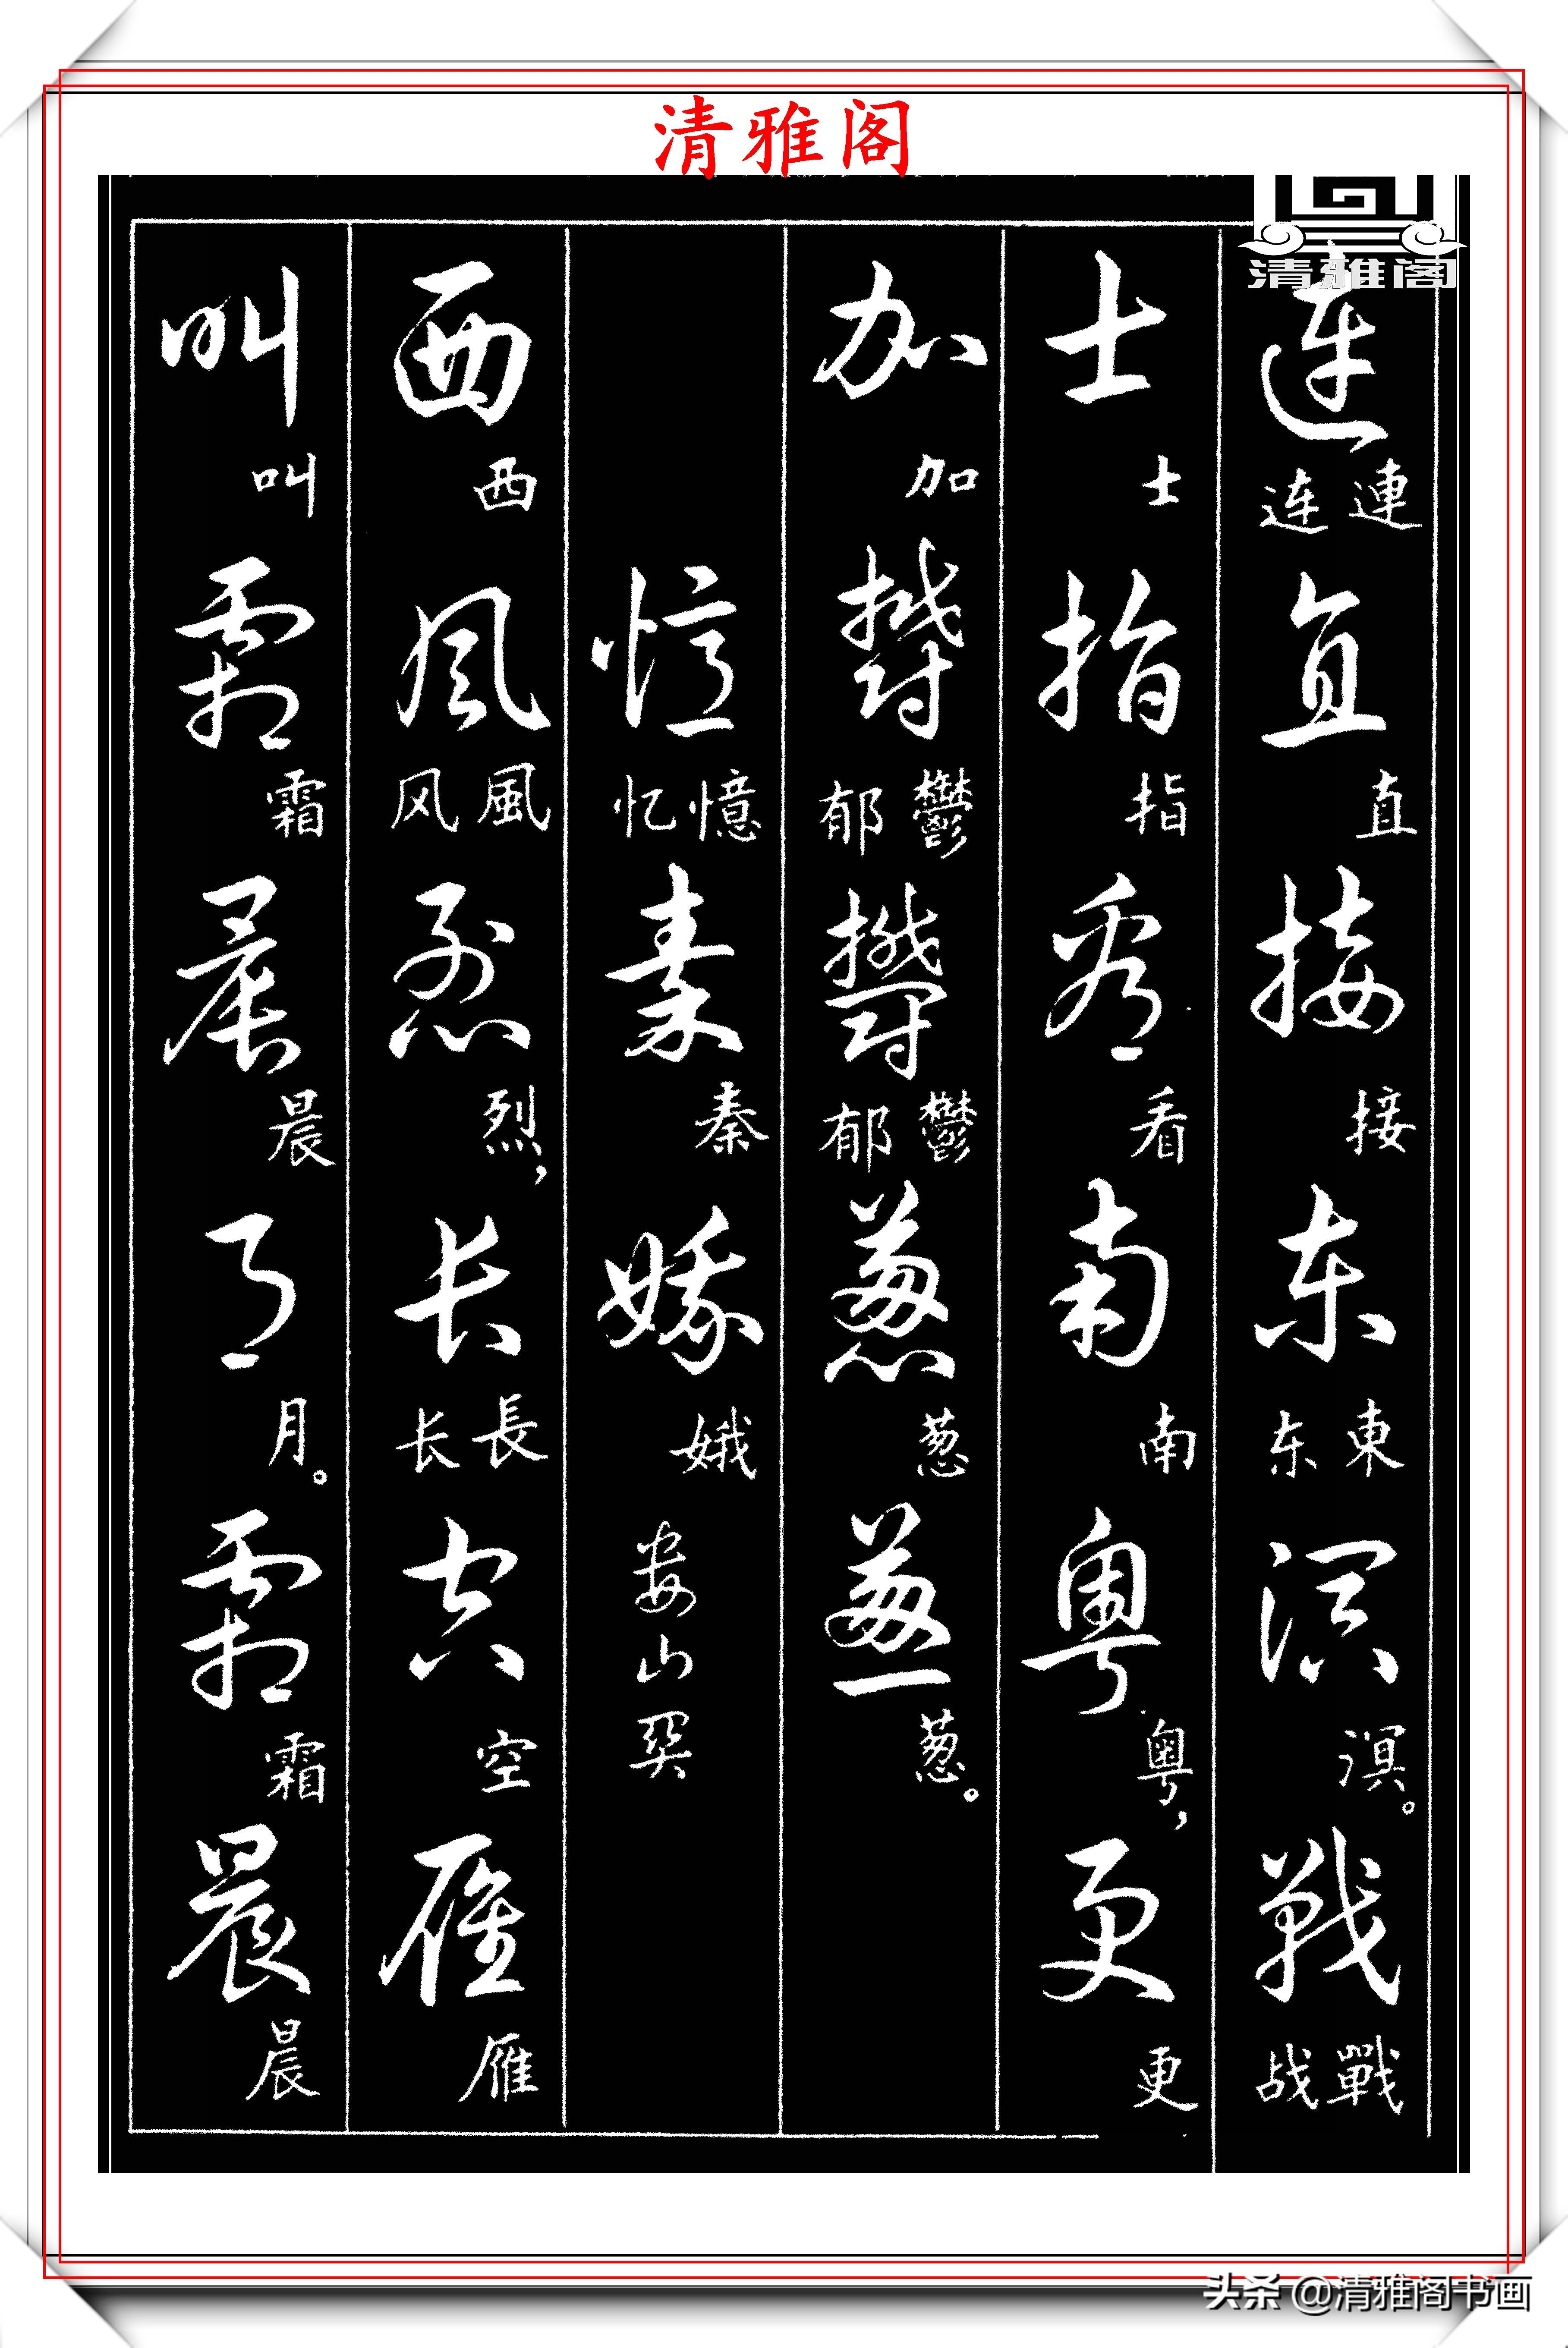 清雅阁
清雅阁
连 連 连 直 直 接 接 东 東 东 溟 溟。 戰 戰 战
士 士 指 指 看 看 南 南 粤 粤， 更 更
加 加 鬱 鬱 郁 鬱 鬱 郁 葱 葱 葱 葱。
憶 憶 忆 秦 秦 娥 娥 娄山关
西 西 風 風 风 烈 烈， 长 長 长 空 空 雁 雁
叫 叫 霜 霜 晨 晨 月 月。 霜 霜 晨 晨
头条 @清雅阁书画